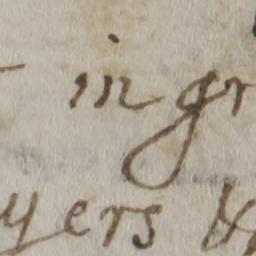 in gr
yers &